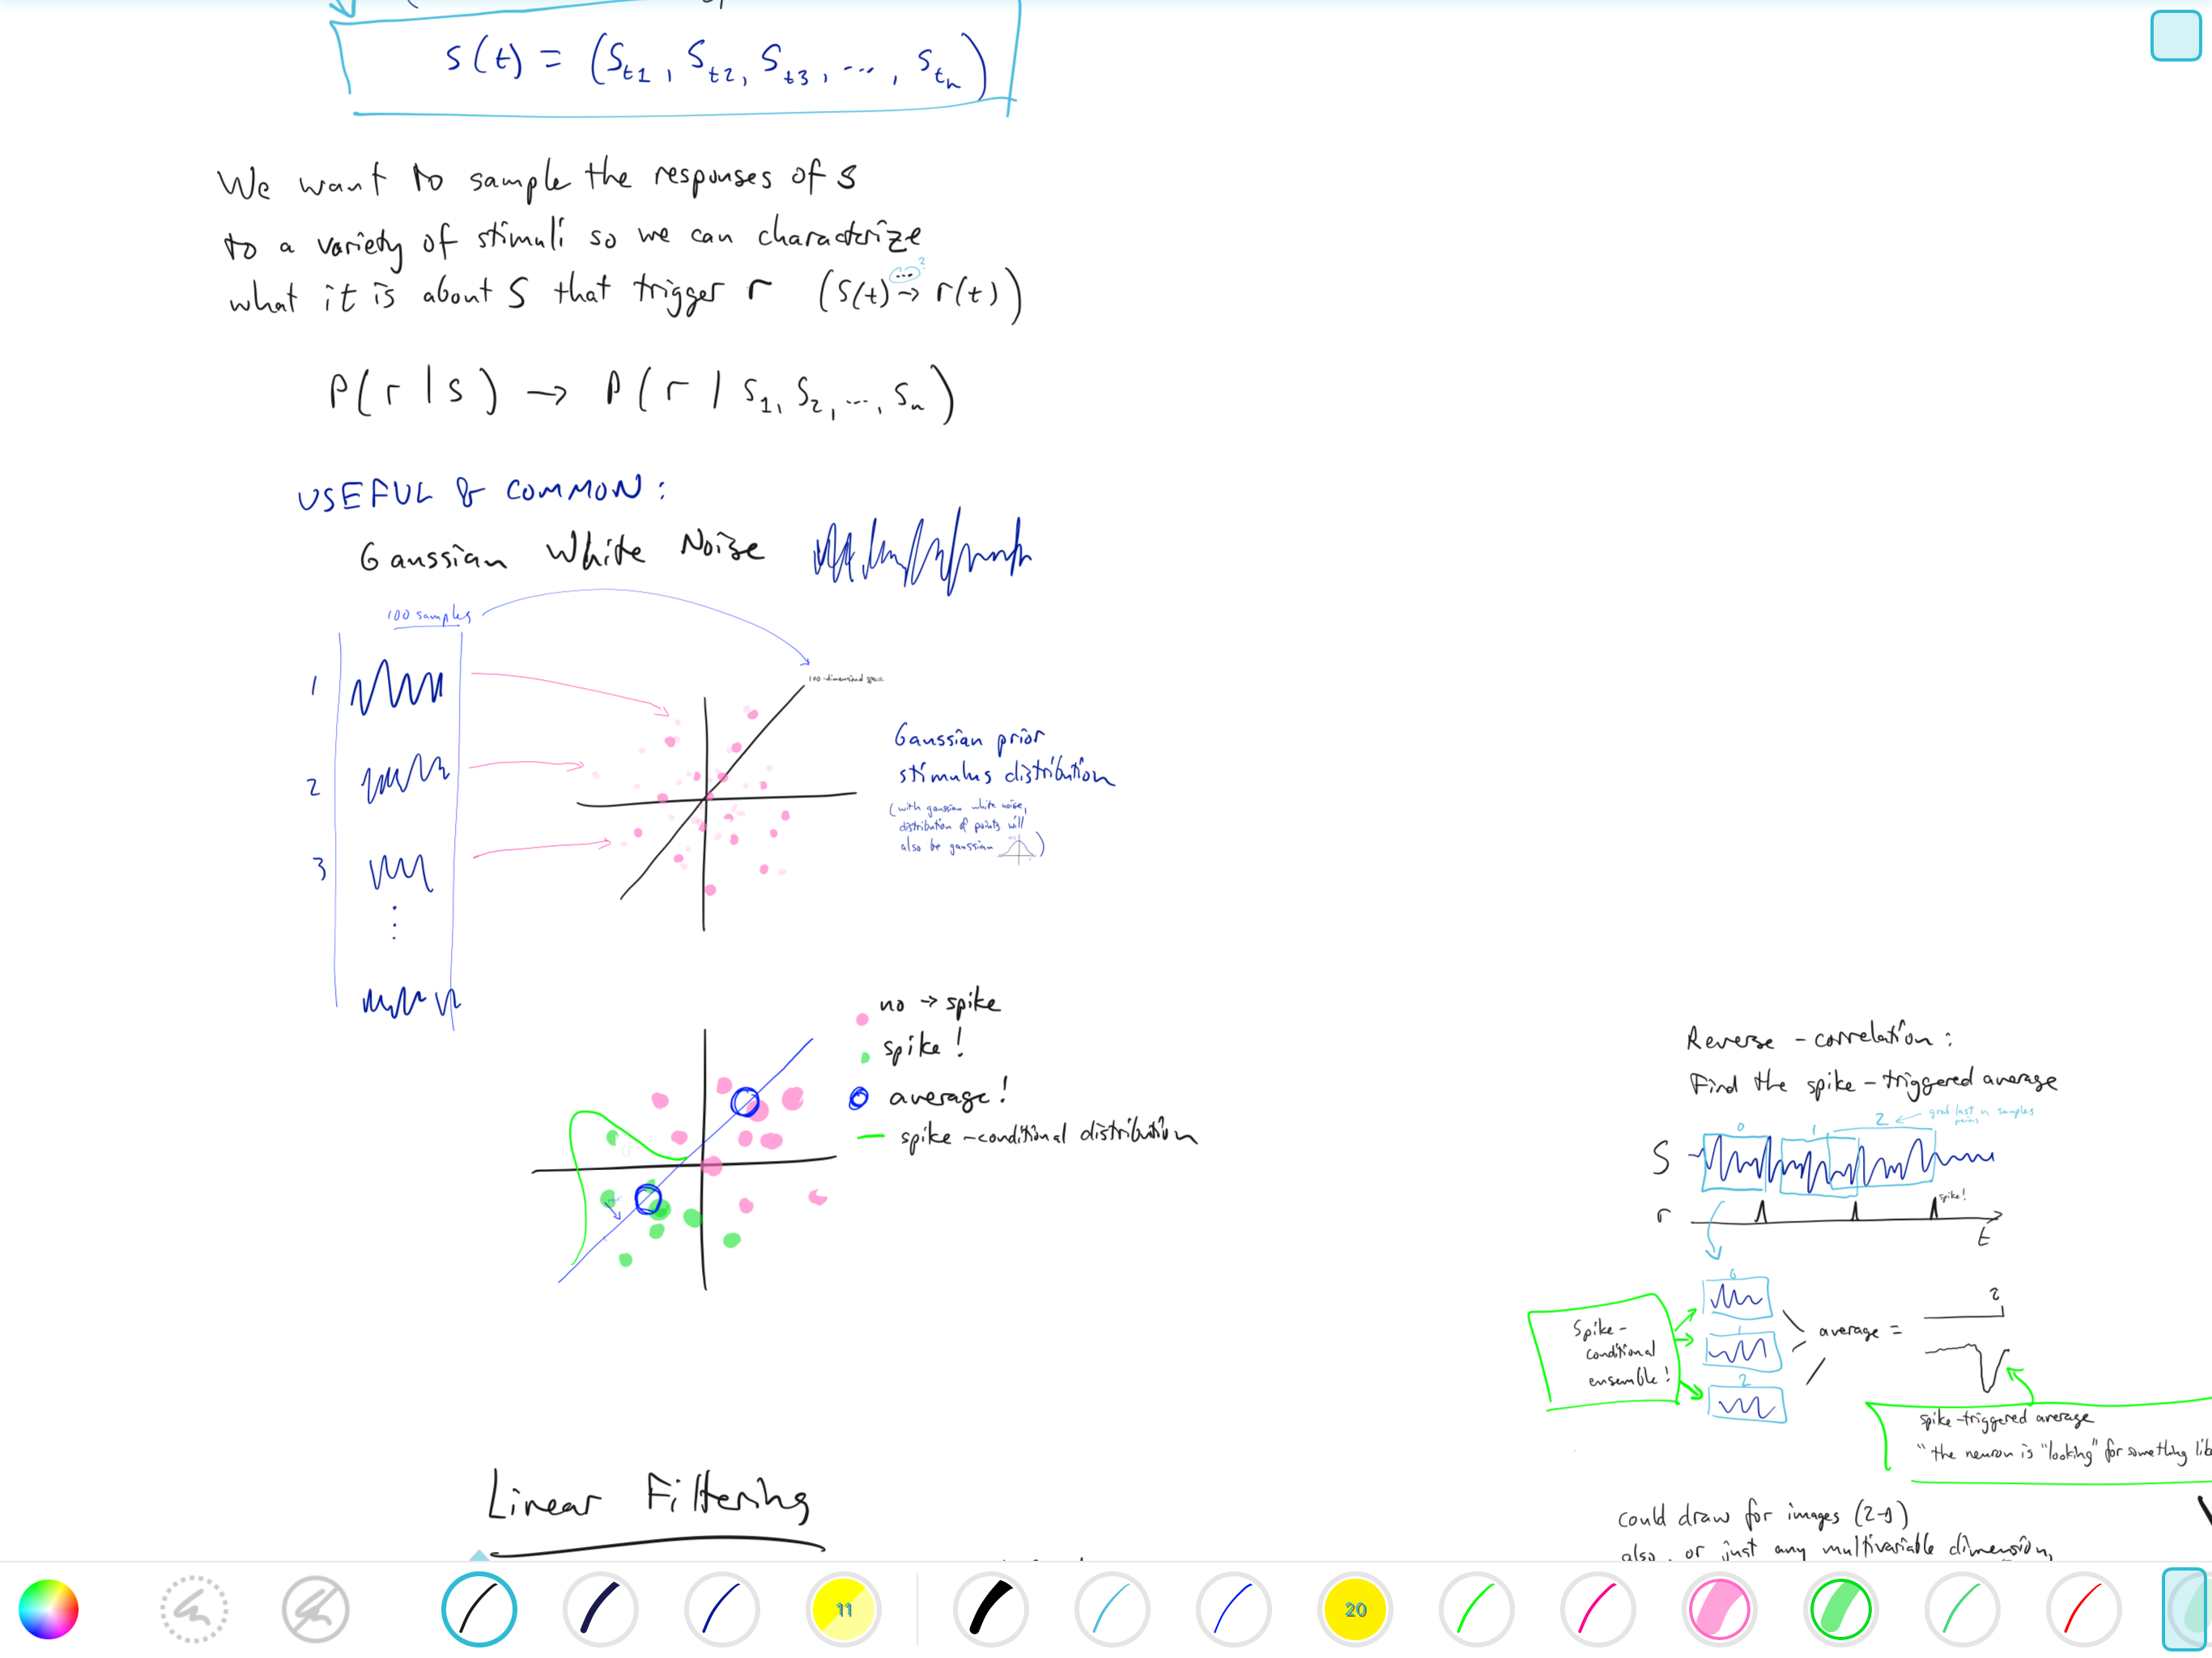 s(t) = (St1, St2, St3, ..., Stn)
We want to sample the responses of s
to a variety of stimuli so we can characterize
what it is about S that trigger r (s(t) → r(t))
...?
P(r | s) → P(r | S1, S2, ..., Sn)
USEFUL & COMMON:
Gaussian White Noise
100 samples
100-dimensional space
1
2
3
Gaussian prior
stimulus distribution
(with gaussian white noise,
distribution of points will
also be gaussian)
no → spike
spike!
average!
— spike-conditional distribution
Reverse-correlation:
Find the spike-triggered average
0 1 2 ← grab last n samples
points
S
r
spike!
t
0
1
2
Spike-
conditional
ensemble!
average =
spike-triggered average
"the neuron is "looking" for something
could draw for images (2-d)
also, or just any multivariable dimension,
Linear Filtering
11
20